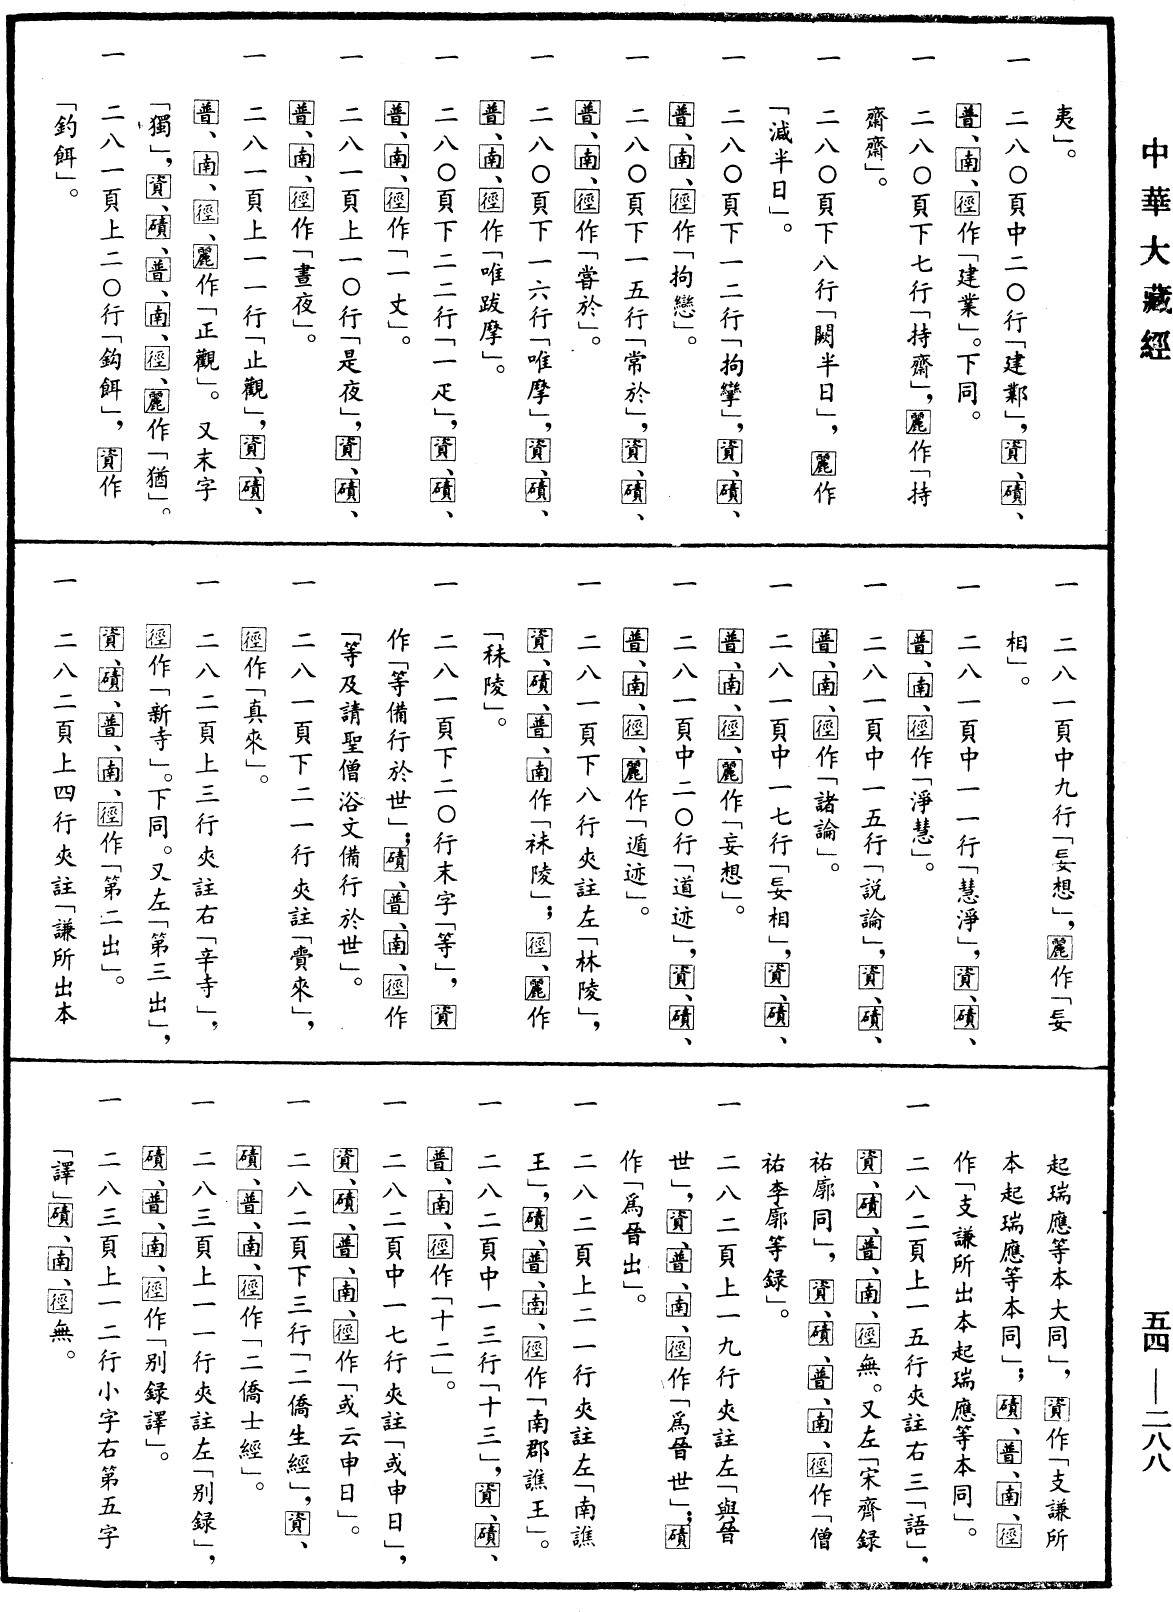 中華大藏經
夷」。
一　二八〇頁中二〇行「建鄴」，資、磧、
普、南、徑作「建業」。下同。
一　二八〇頁下七行「持齋」，麗作「持
齋齋」。
一　二八〇頁下八行「闕半日」，麗作
「減半日」。
一　二八〇頁下一二行「拘攣」，資、磧、
普、南、徑作「拘戀」。
一　二八〇頁下一五行「常於」，資、磧、
普、南、徑作「嘗於」。
一　二八〇頁下一六行「唯摩」，資、磧、
普、南、徑作「唯跋摩」。
一　二八〇頁下二二行「一疋」，資、磧、
普、南、徑作「一丈」。
一　二八一頁上一〇行「是夜」，資、磧、
普、南、徑作「晝夜」。
一　二八一頁上一一行「止觀」，資、磧、
普、南、徑、麗作「正觀」。又末字
「獨」，資、磧、普、南、徑、麗作「猶」。
一　二八一頁上二〇行「鈎餌」，資作
「釣餌」。
一　二八一頁中九行「妄想」，麗作「妄
相」。
一　二八一頁中一一行「慧淨」，資、磧、
普、南、徑作「淨慧」。
一　二八一頁中一五行「説論」，資、磧、
普、南、徑作「諸論」。
一　二八一頁中一七行「妄相」，資、磧、
普、南、徑、麗作「妄想」。
一　二八一頁中二〇行「道迹」，資、磧、
普、南、徑、麗作「遁迹」。
一　二八一頁下八行夾註左「林陵」，
資、磧、普、南作「袜陵」；徑、麗作
「秣陵」。
一　二八一頁下二〇行末字「等」，資
作「等備行於世」；磧、普、南、徑作
「等及請聖僧浴文備行於世」。
一　二八一頁下二一行夾註「賷來」，
徑作「真來」。
一　二八二頁上三行夾註右「辛寺」，
徑作「新寺」。下同。又左「第三出」，
資、磧、普、南、徑作「第二出」。
一　二八二頁上四行夾註「謙所出本
起瑞應等本大同」，資作「支謙所
本起瑞應等本同」；磧、普、南、徑
作「支謙所出本起瑞應等本同」。
一　二八二頁上一五行夾註右三「語」，
資、磧、普、南、徑無。又左「宋齊録
祐廓同」，資、磧、普、南、徑作「僧
祐李廓等録」。
一　二八二頁上一九行夾註左「與晉
世」，資、普、南、徑作「爲晉世」；磧
作「爲晉出」。
一　二八二頁上二一行夾註左「南譙
王」，磧、普、南、徑作「南郡譙王」。
一　二八二頁中一三行「十三」，資、磧、
普、南、徑作「十二」。
一　二八二頁中一七行夾註「或申日」，
資、磧、普、南、徑作「或云申日」。
一　二八二頁下三行「二僑生經」，資、
磧、普、南、徑作「二僑士經」。
一　二八三頁上一一行夾註左「别録」，
磧、普、南、徑作「别録譯」。
一　二八三頁上一二行小字右第五字
「譯」磧、南、徑無。
五四——二八八